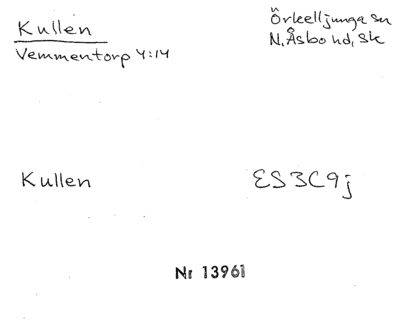 Kullen
Vemmentorp 4:14
Örkelljunga sn
N. Åsbo hd, Sk
Kullen
ES3C9j
Nr 13961